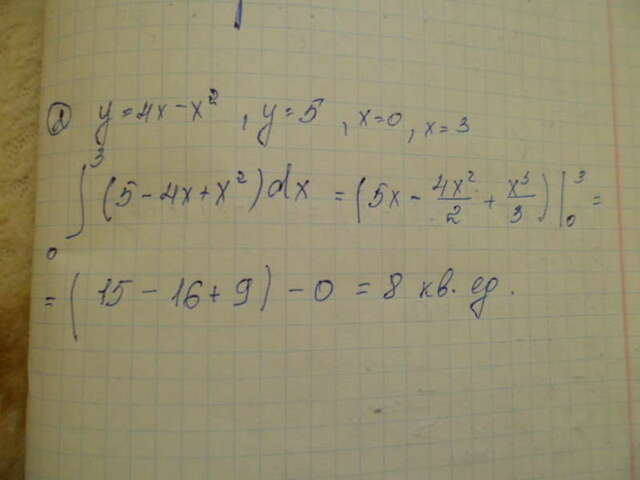 ① y=4x-x², y=5, x=0, x=3
∫₀³ (5-4x+x²)dx = (5x - 4x²/2 + x³/3)|₀³ =
= (15-16+9)-0 = 8 кв. ед.